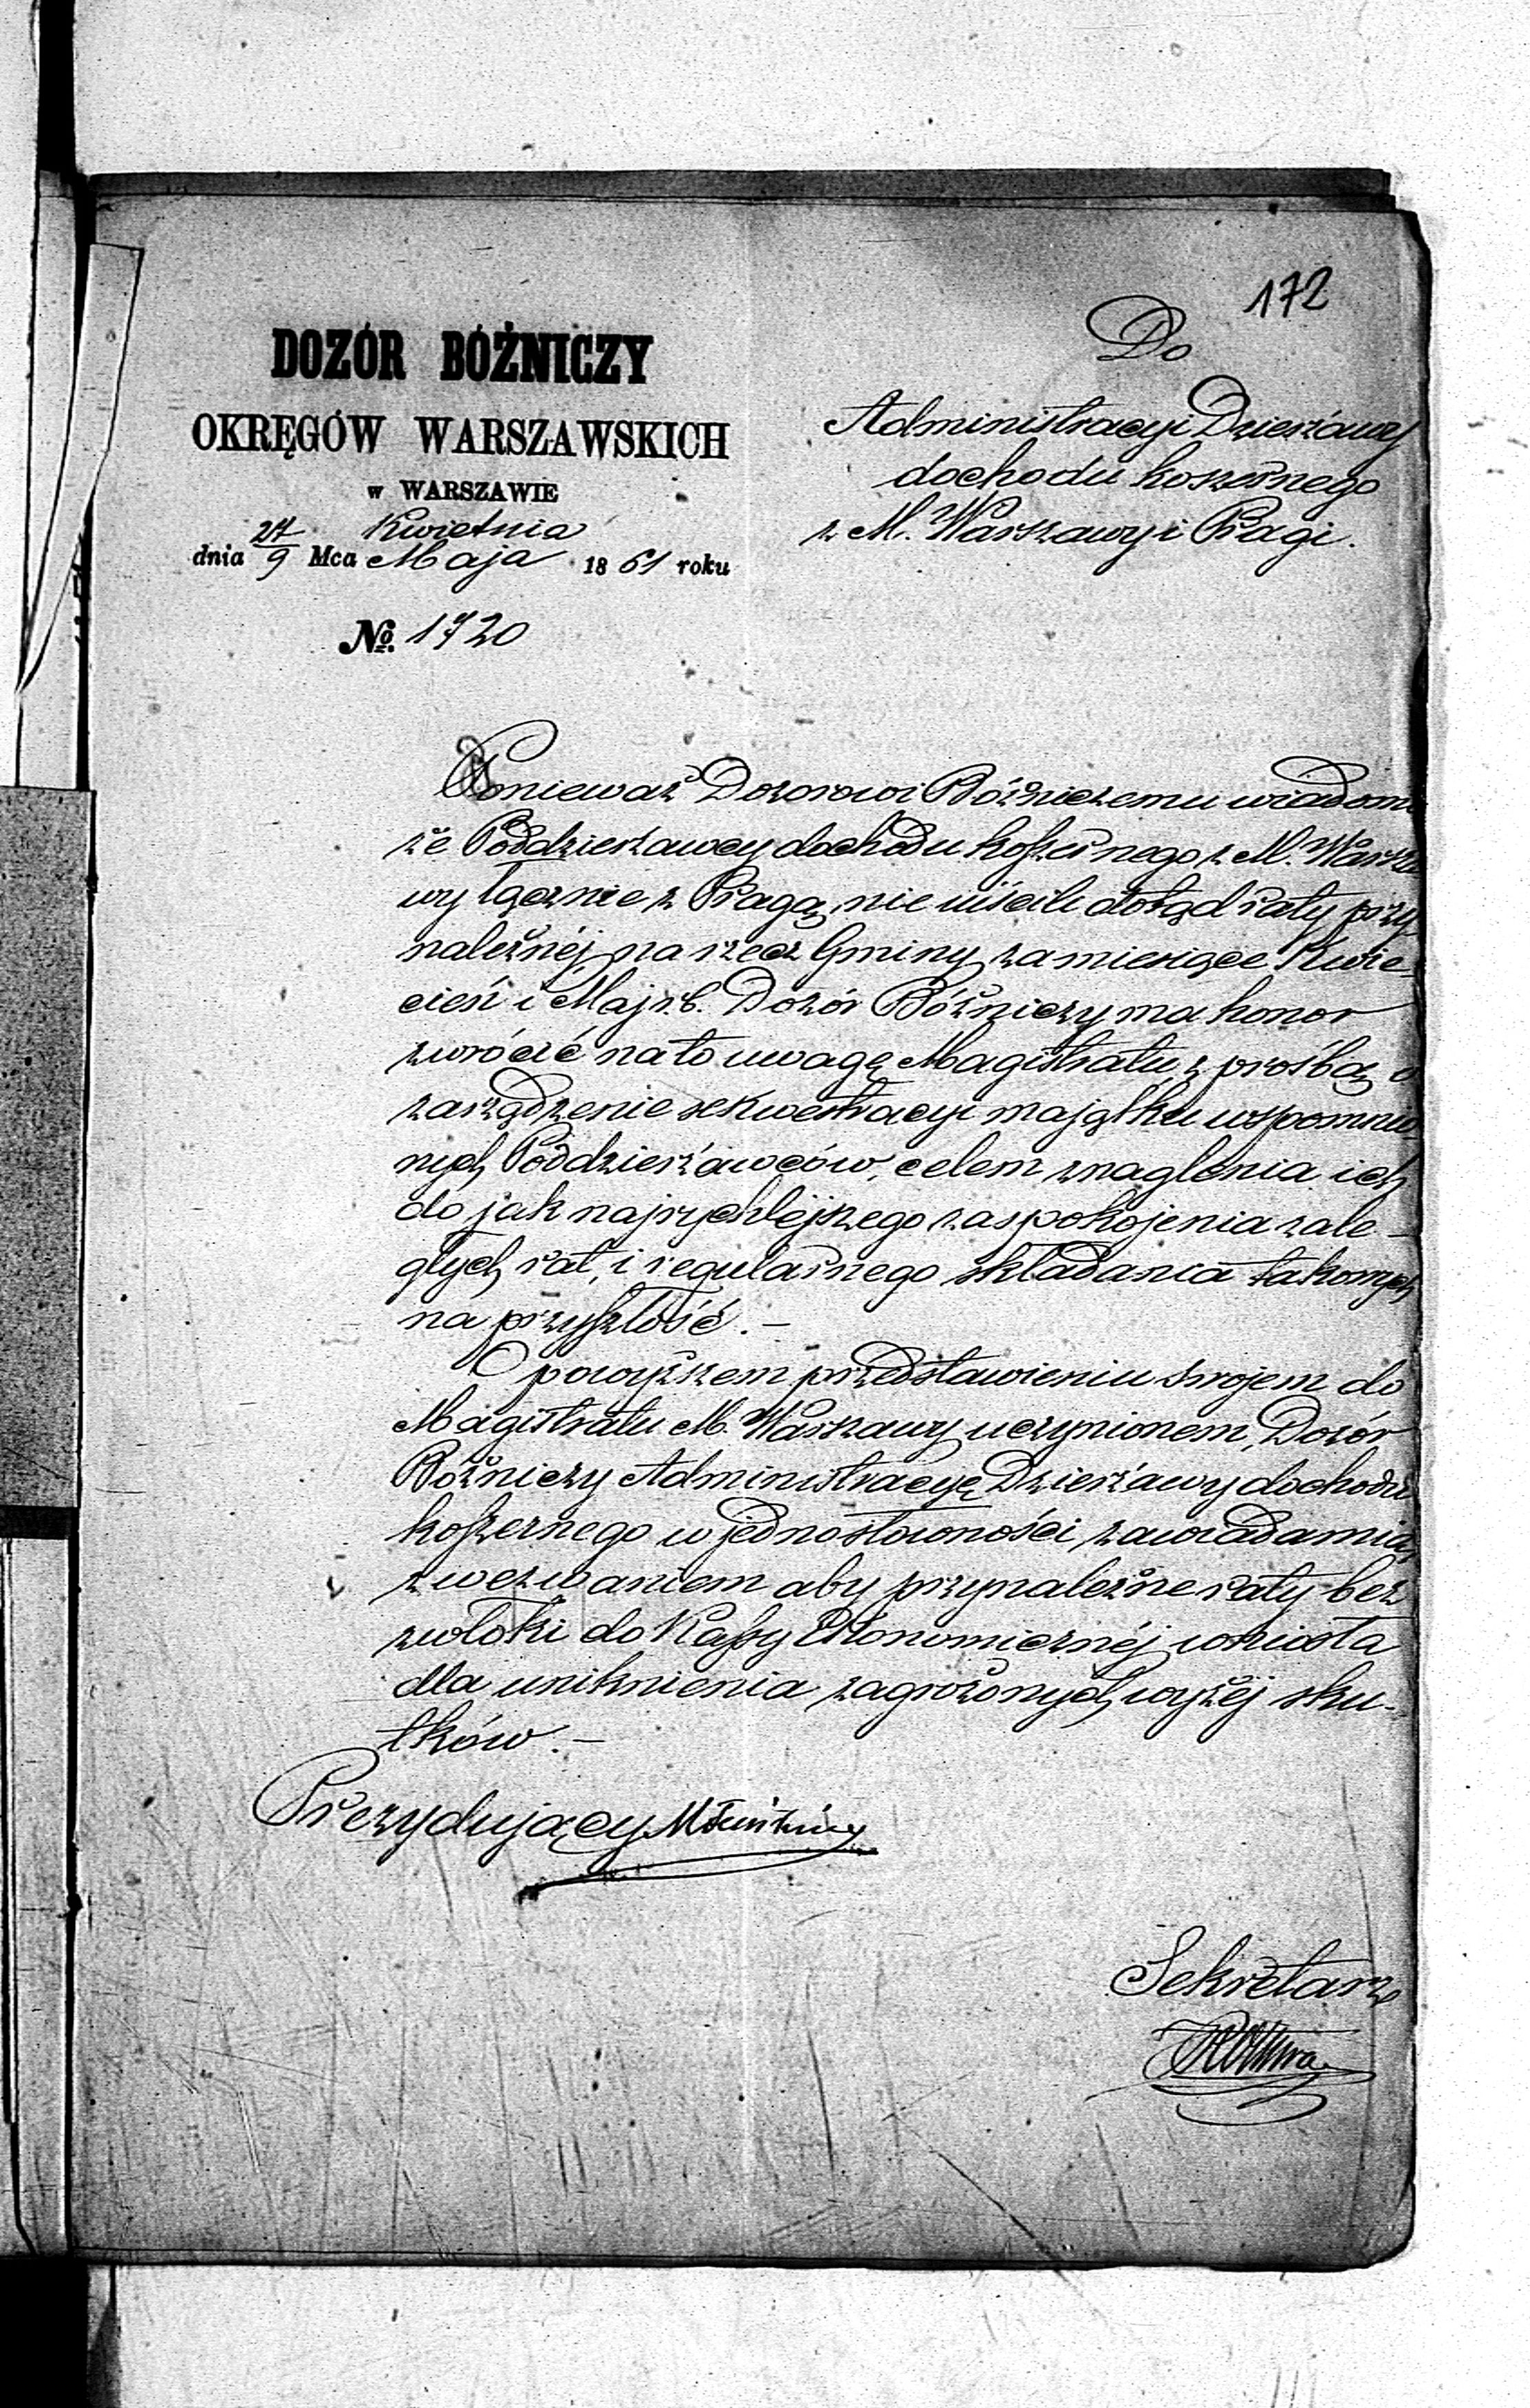 172
DOZÓR BÓŻNICZY
OKRĘGÓW WARSZAWSKICH
w WARSZAWIE
27 Kwietnia
dnia 9 Mca Maja 1861 roku
№ 1720
Do
Administracyi Dzierżawy
dochodu koszernego
z M. Warszawy i Pragi.
Ponieważ Dozorowi Bóżniczemu wiadomo
że Poddzierżawcy dochodu koszernego z M. Warsza
wy łącznie z Pragą, nie uiścili dotąd raty przy
należnéj na rzecz Gminy za miesiące Kwie-
cień i Maj r.b. Dozór Bóżniczy ma honor
zwrócić na to uwagę Magistratu, z prośbą o
zarządzenie sekwestracyi majątku wspomnio
nych Poddzierżawców, celem znaglenia ich
do jak najrychlejszego zaspokojenia zale-
głych rat, i regularnego składania takowych
na przyszłość.—
O powyższem przedstawieniu swojem do
Magistratu M. Warszawy uczynionem, Dozór
Bóżniczy Administracyę Dzierżawy dochodu
koszernego w jednosłowności zawiadamia,
z wezwaniem aby przynależne raty bez
zwłoki do Kassy Ekonomicznéj wniosła
dla uniknienia zagrożonych wyżéj sku-
tków.—
Prezydujący
Sekretarz